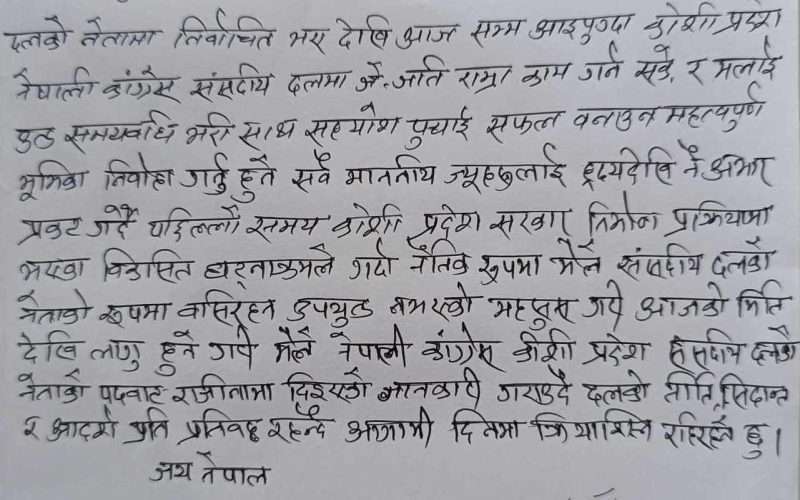 दलको नेतामा निर्वाचित भए देखि आज सम्म आइपुग्दा कोशी प्रदेश
नेपाली कांग्रेस संसदीय दलमा जे, जति राम्रा काम गर्न सके, र मलाई
पुरा समयावधि भरी साथ सहयोग पुर्याई सफल वनाउन महत्वपुर्ण
भूमिका निर्वाह गर्नु हुने सवै माननीय ज्यूहरुलाई ह्रदयदेखि नै आभार
प्रकट गर्दै पछिल्लो समय कोशी प्रदेश सरकार निर्माण प्रक्रियामा
भएका विकसित घटनाक्रमले गर्दा नैतिक रुपमा मैले संसदीय दलको
नेताको रुपमा वसिरहन उपयुक्त नभएको महसुस गरी आजको मिति
देखि लागु हुने गरी मैले नेपाली कांग्रेस कोशी प्रदेश संसदीय दलको
नेताको पदवाट राजीनामा दिइएको जानकारी गराउदै दलको नीति, सिदान्त
र आदर्श प्रति प्रतिवद्ध रहन्दै आगामी दिनमा क्रियाशिल रहिरहने छु ।
जय नेपाल